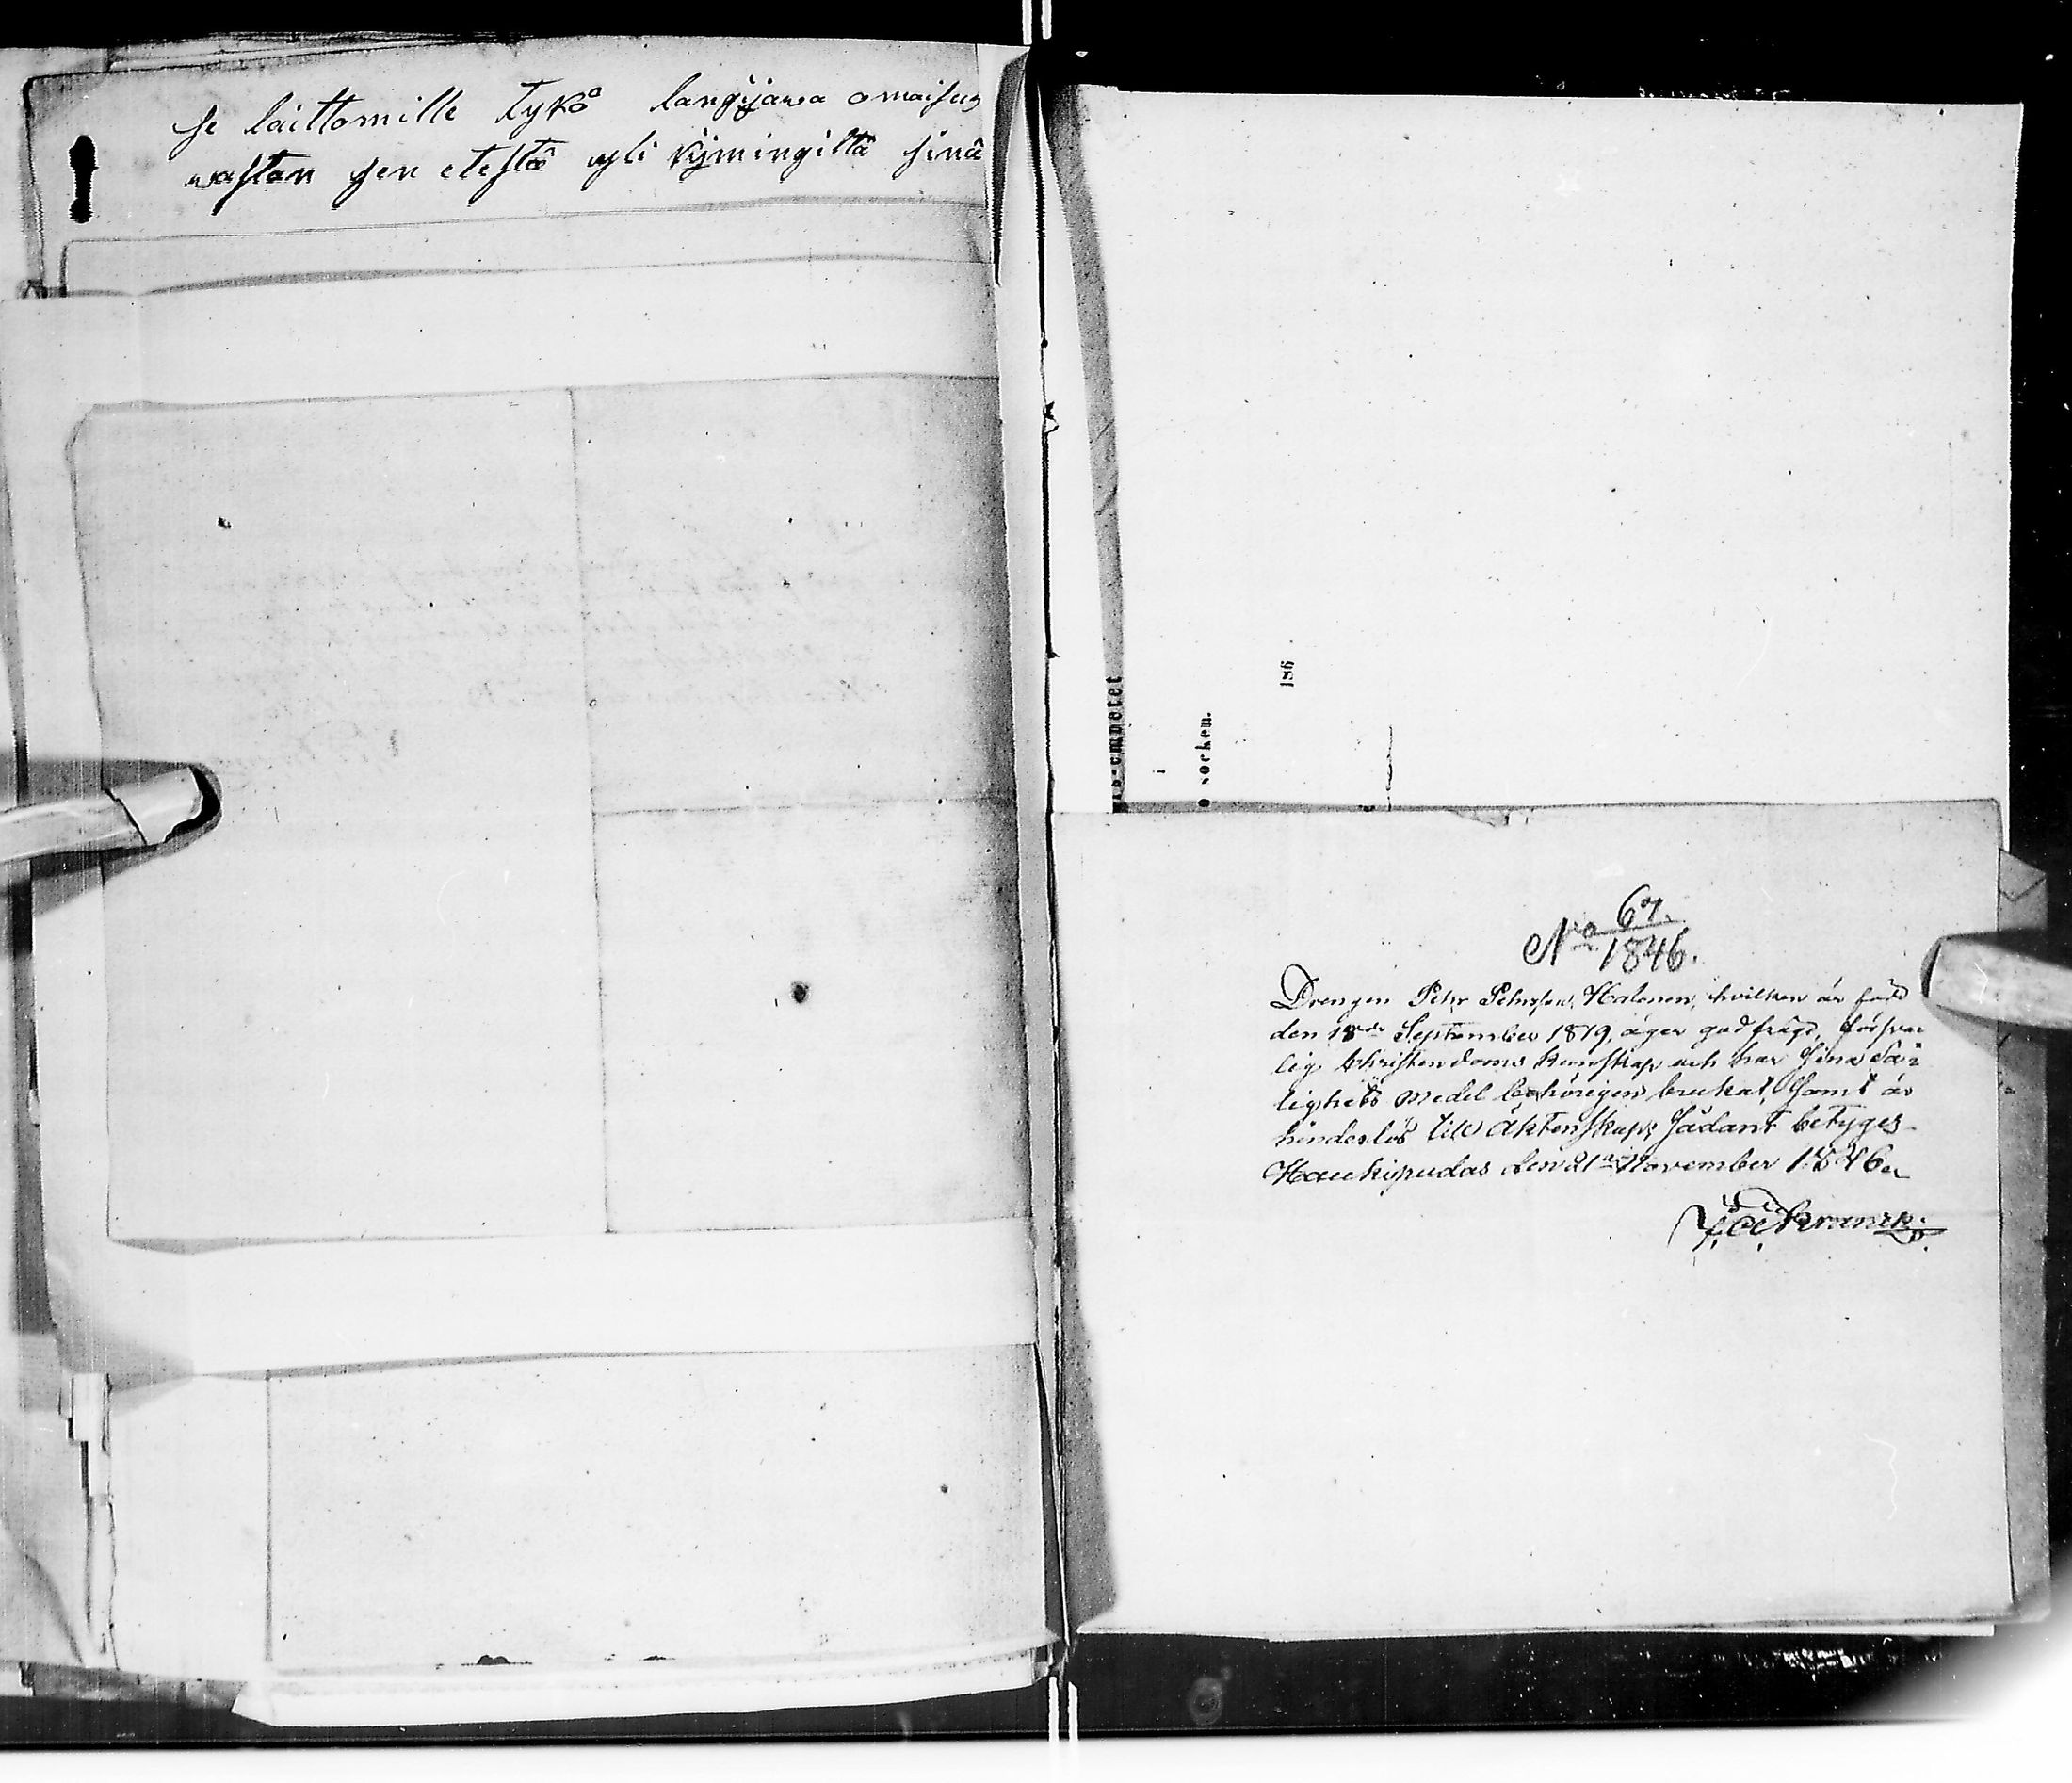 se laittomille tykö langijawa omaisus
wastan sen etestä yli kymingiltä sinä
rs-embetet
i
o socken.
186 .
No 67.
1846.
Drengen Pehr Pehrsson Halonen, hvilken är född
den 18de September 1819, äger god frägd, försvar
lig Christendoms kunskap och har sina Sa-
lighets medel behörigen brukat, samt är
hinderlös till Äktenskap; sådant betyges
Haukipudas den 21 November 1846